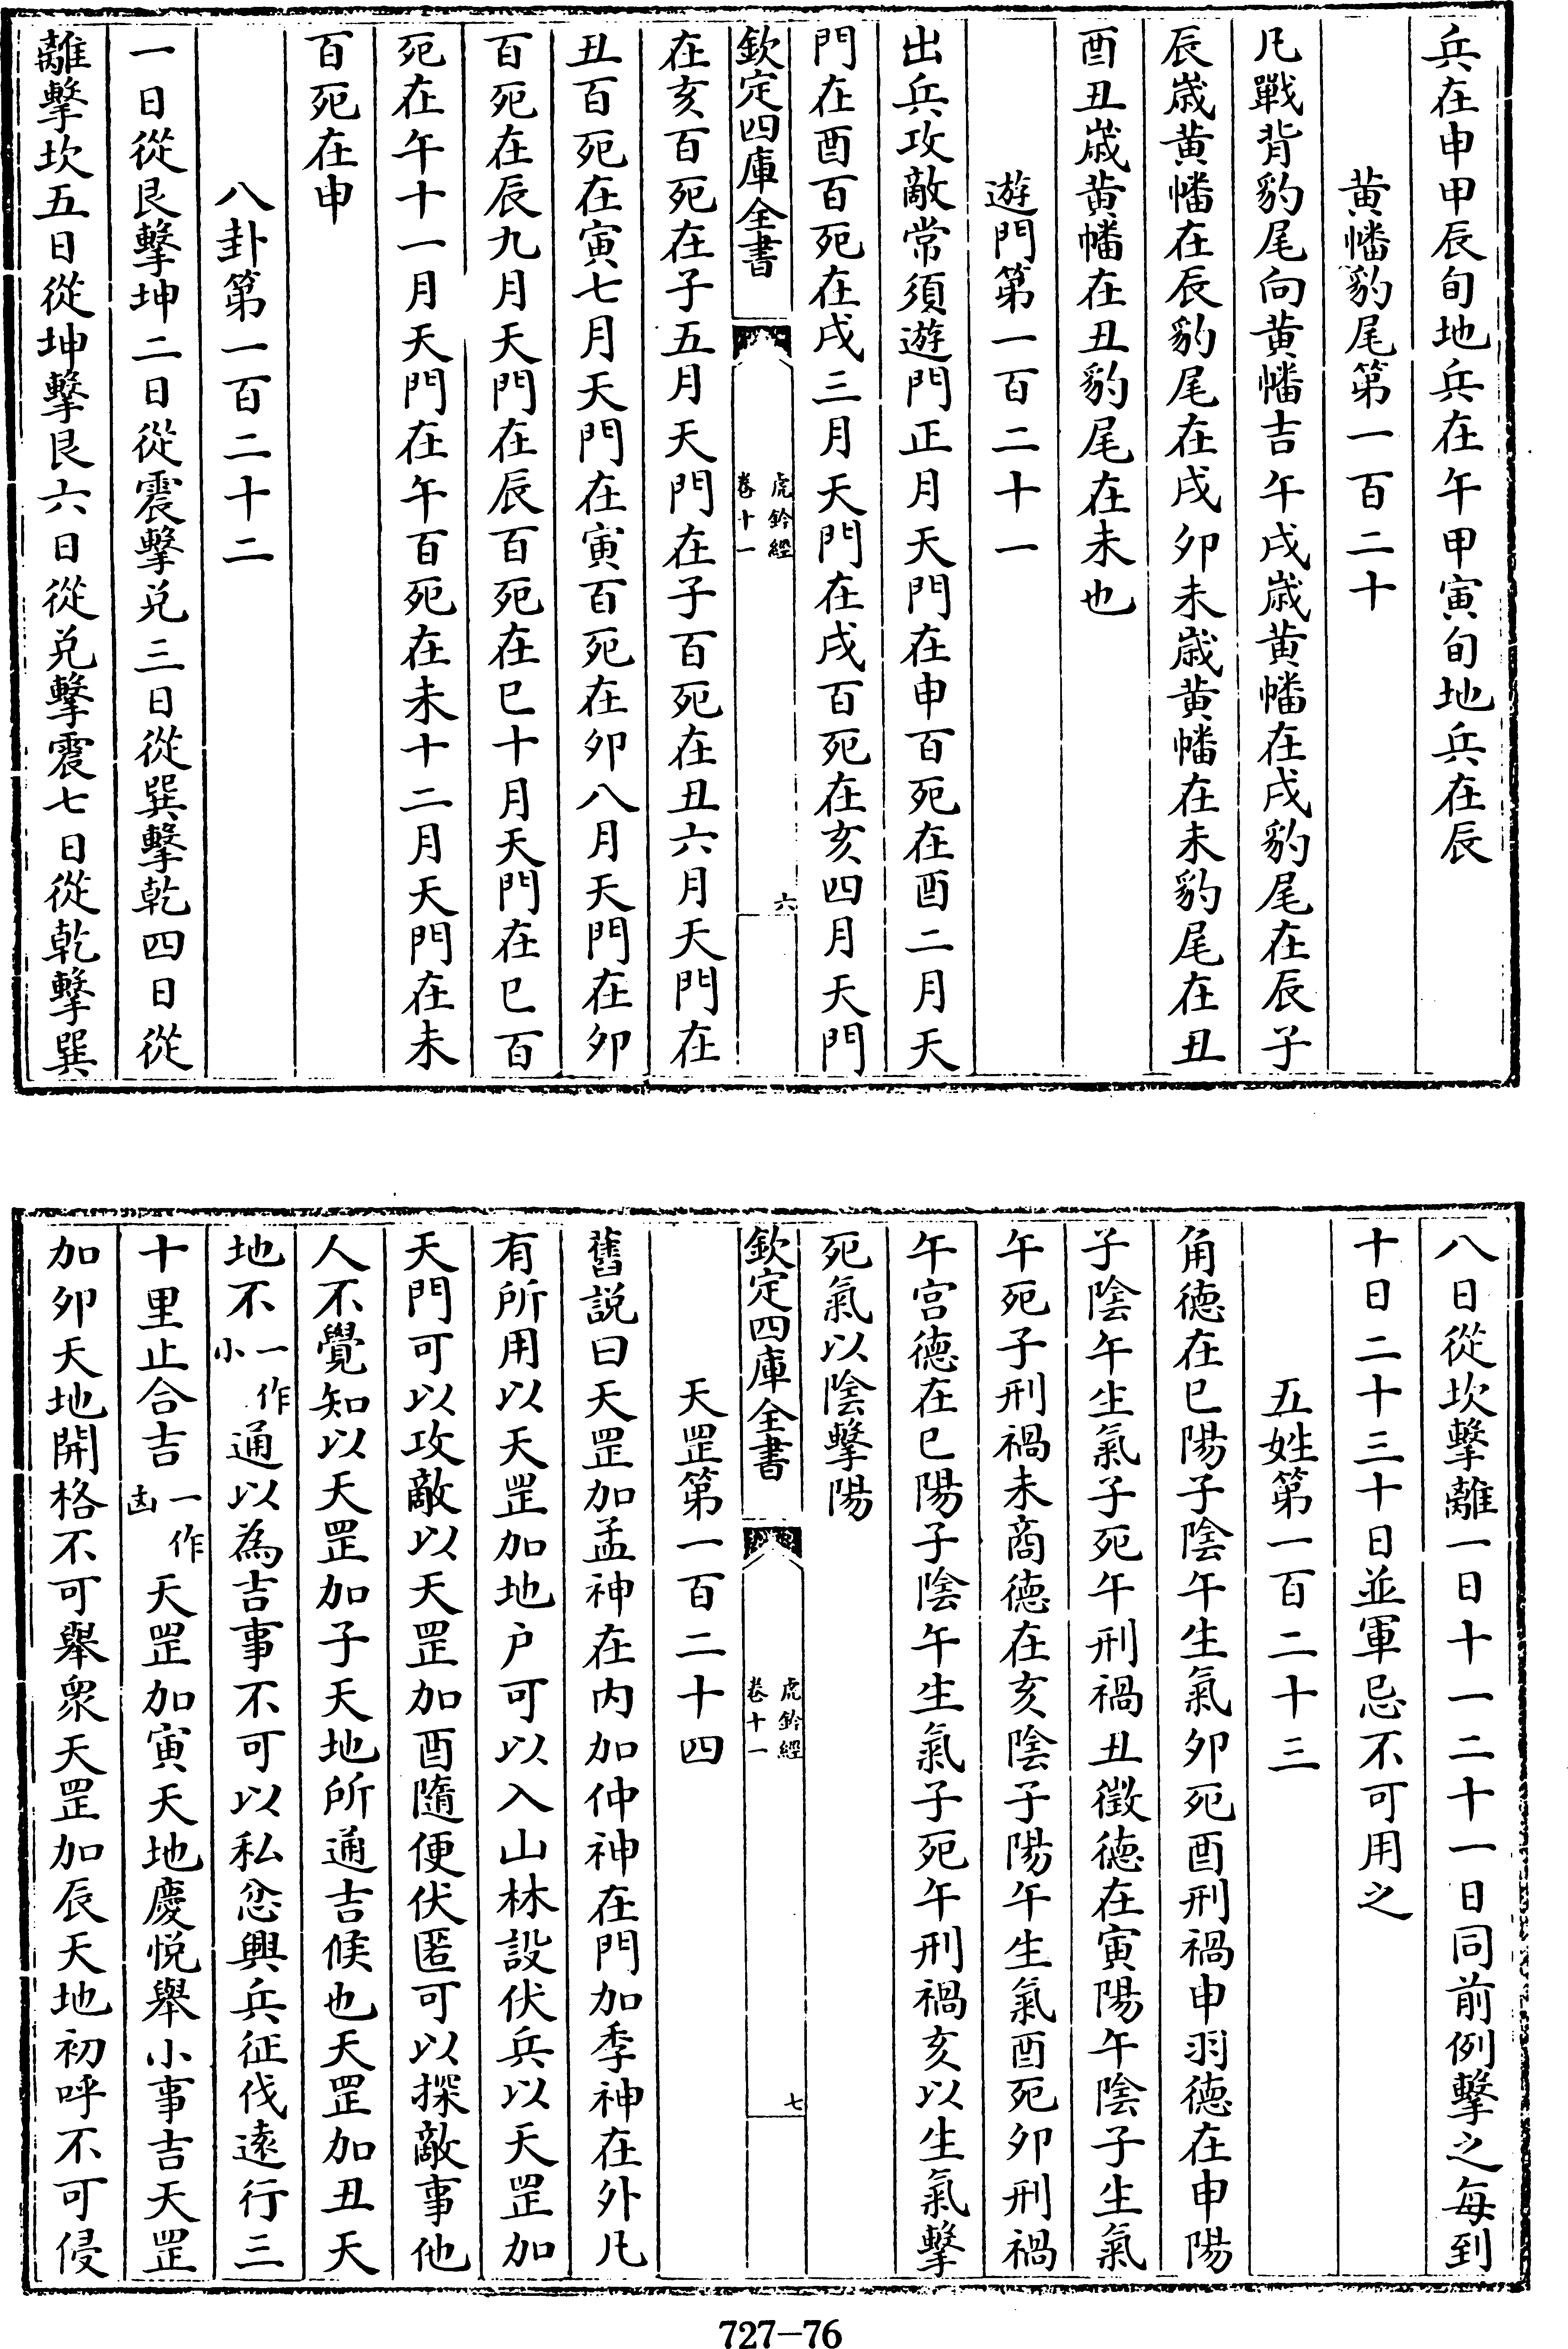 兵在申甲辰旬地兵在午甲寅旬地兵在辰
黄幡豹尾第一百二十
凡戰背豹尾向黄幡吉午戌歲黄幡在戌豹尾在辰子
辰歲黄幡在辰豹尾在戌卯未歲黄幡在未豹尾在丑
酉丑歲黄幡在丑豹尾在未也
遊門第一百二十一
出兵攻敵常須遊門正月天門在申百死在酉二月天
門在酉百死在戌三月天門在戌百死在亥四月天門
欽定四庫全書
虎鈐經
卷十一
六
在亥百死在子五月天門在子百死在丑六月天門在
丑百死在寅七月天門在寅百死在卯八月天門在卯
百死在辰九月天門在辰百死在巳十月天門在巳百
死在午十一月天門在午百死在未十二月天門在未
百死在申
八卦第一百二十二
一日從艮擊坤二日從震擊兑三日從巽擊乾四日從
離擊坎五日從坤擊艮六日從兑擊震七日從乾擊巽
八日從坎擊離一日十一二十一日同前例擊之每到
十日二十三十日並軍忌不可用之
五姓第一百二十三
角德在巳陽子陰午生氣卯死酉刑禍申羽德在申陽
子陰午生氣子死午刑禍丑徵德在寅陽午陰子生氣
午死子刑禍未商德在亥陰子陽午生氣酉死卯刑禍
午宫德在巳陽子陰午生氣子死午刑禍亥以生氣擊
死氣以陰擊陽
欽定四庫全書
虎鈐經
卷十一
七
天罡第一百二十四
舊説曰天罡加孟神在内加仲神在門加季神在外凡
有所用以天罡加地户可以入山林設伏兵以天罡加
天門可以攻敵以天罡加酉隨便伏匿可以探敵事他
人不覺知以天罡加子天地所通吉候也天罡加丑天
地不一作小通以為吉事不可以私忿興兵征伐逺行三
十里止合吉一作凶天罡加寅天地慶悦舉小事吉天罡
加卯天地開格不可舉衆天罡加辰天地初呼不可侵
727-76